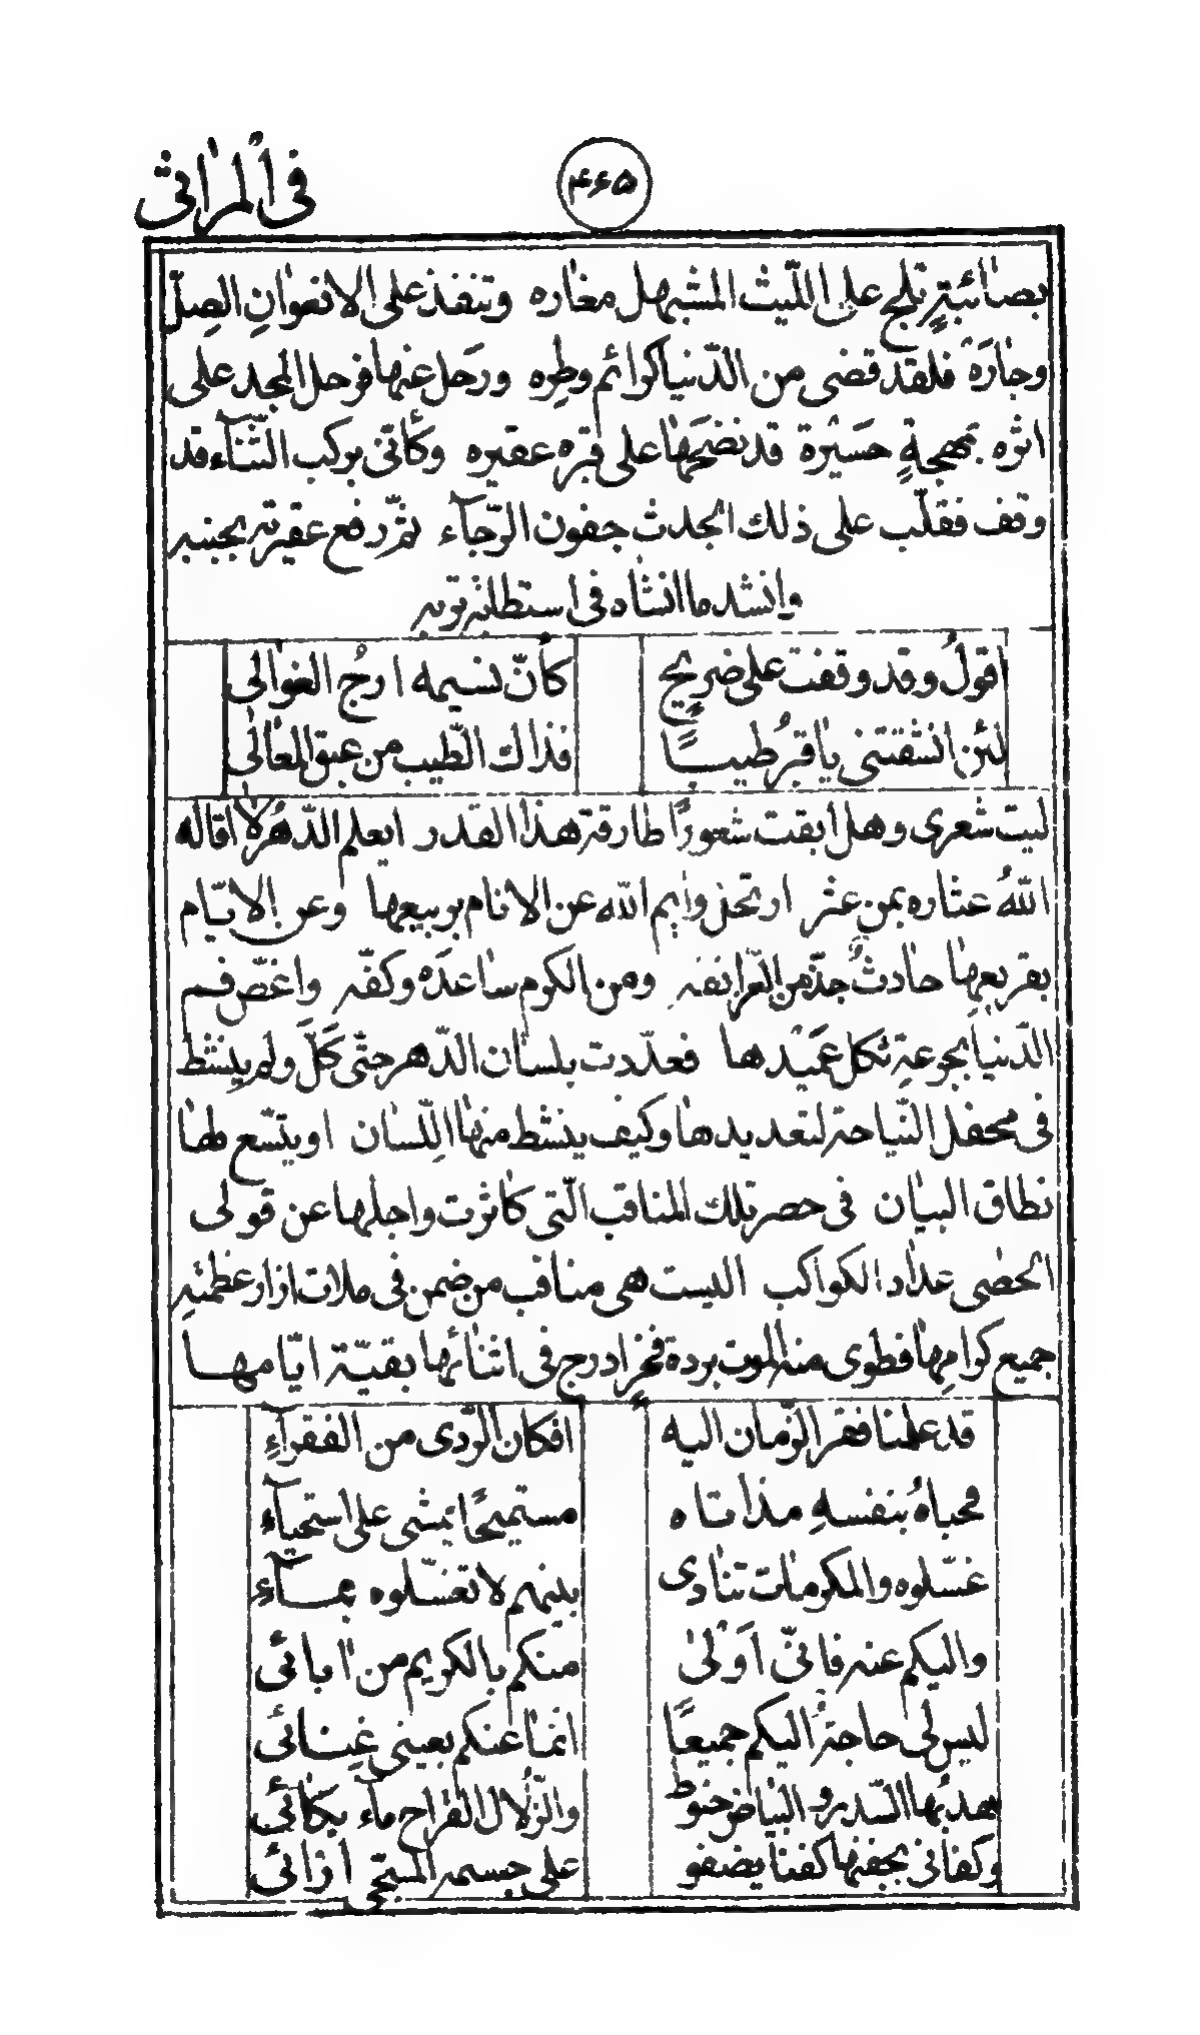 فى المراثى
۴۶۵
بصائبةٍ تلج على اللّيث المشبهل مغاره وتنفذ على الافعوانِ الصِلّ
وجاره فلقد قضى من الدّنيا كرائم وطره ورحل عنها فرحل المجد على
اثره بمهجةٍ حسيرة قد نضحها على قبره عقيره وكأنّى بركب الثّنآء قد
وقف فقلّب على ذلك الجدث جفون الرّجآء ثمّ رفع عقيرته بجنبه
وانشد ما انشاد فى استطابة تربه
اقولُ وقد وقفت على ضريحٍ كأنّ نسيمه ارجُ الغوالى
لئن انشقتنى يا قبرُ طيبًا فذاك الطّيب من عبق المعالى
ليت شعرى وهل ابقت شعورًا طارقة هذا القدر ايعلم الدّهرُ لا اقاله
اللهُ عثاره بمن عثر ارتحل وايم الله عن الانام بربيعها وعن الايّام
بقريعها حادثٌ جذّ من العرانفه ومن الكرم ساعده وكفّه واغصّ فم
الدّنيا بجرعةِ ثكل عميدها فعدّدت بلسان الدّهر حتّى كلّ ولم ينشط
فى محفل النّياحة لتعديدها وكيف ينشط منها اللّسان او يتّسع لها
نطاق البيان فى حصر تلك المناقب الّتى كاثرت واجلها عن قولى
الحصى عداد الكواكب اليست هى مناقب من ضمن فى ملاث ازار عظمته
جميع كرامها فطوى منه الموت برده فخرٍ ادرج فى اثنائها بقيّة ايّامها
قد علمنا فقر الزّمان اليه افكان الرّدى من الفقرآءِ
فحباهُ بنفسهِ مذ اتاه مستميحًا يمشى على استحيآء
غسّلوه والمكرمات تنادى بينهم لا تغسّلوه بمآء
واليكم عنه فانّى اولى منكم بالكريم من ابائى
ليس لى حاجةٌ اليكم جميعًا انّما عنكم بعينى غنائى
هدبُها السّدر والبياض حنوط والزّلال القراح مآء بكائى
وكفانى بجفنها كفنا يضفو على جسمه المسجّى ازائى